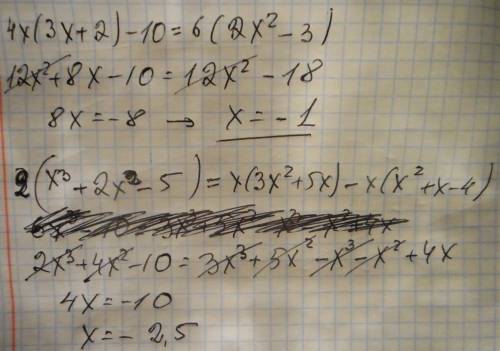 4x(3x+2)-10=6(2x²-3)
12x²+8x-10=12x²-18
8x=-8 → x=-1
2(x³+2x²-5)=x(3x²+5x)-x(x²+x-4)
2x³+4x²-10=3x³+5x²-x³-x²+4x
4x=-10
x=-2,5